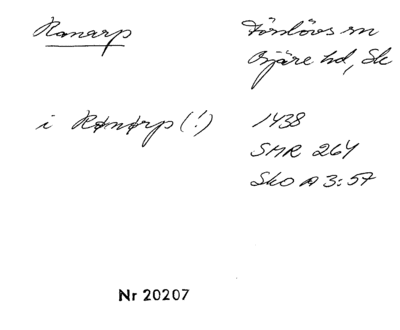 Ranarp Förslövs sn
Bjäre hd, Sk
i Rønørp (!) 1438
SMR 264
Sko A 3:57
Nr 20207